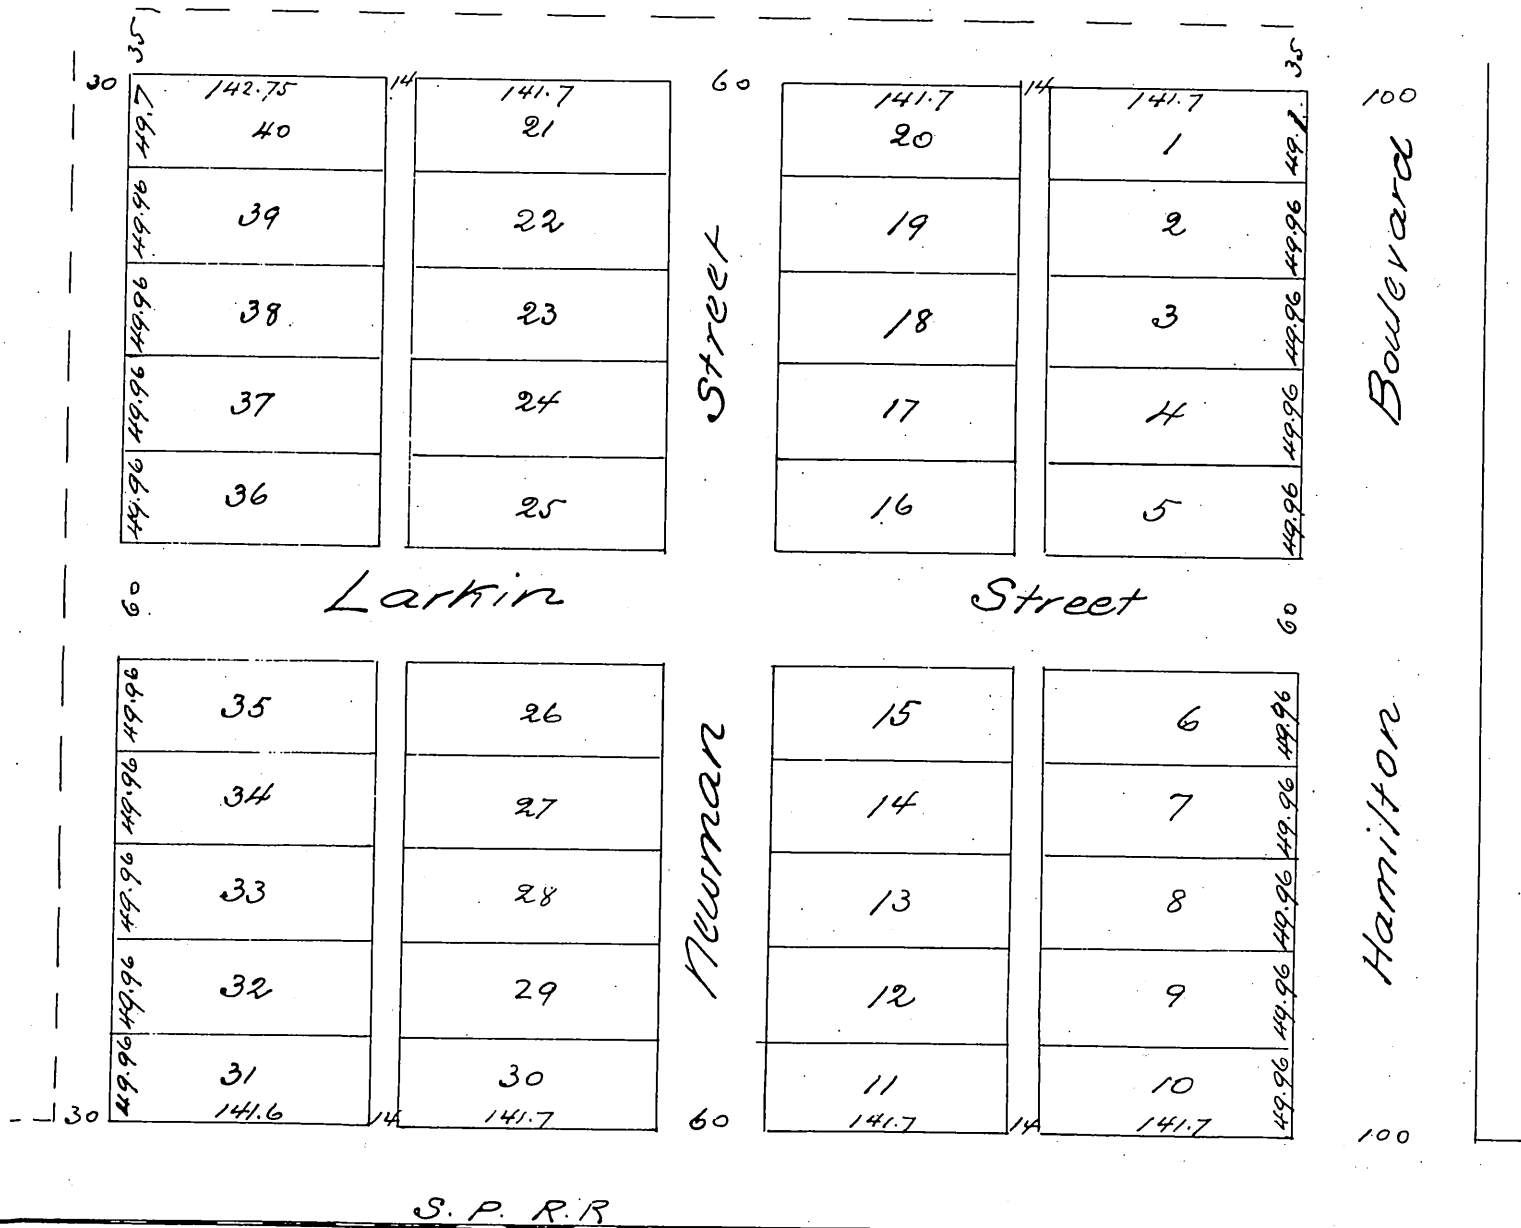 35 35
30 142.75 14 141.7 60 141.7 14 141.7 100
49.7 40 21 20 1 49.1
49.96 39 22 19 2 49.96
49.96 38 23 18 3 49.96
49.96 37 24 17 4 49.96
49.96 36 25 16 5 49.96
Street
Boulevard
60 Larkin Street 60
49.96 35 26 15 6 49.96
49.96 34 27 14 7 49.96
49.96 33 28 13 8 49.96
49.96 32 29 12 9 49.96
49.96 31 30 11 10 49.96
Newman
Hamilton
30 141.6 14 141.7 60 141.7 14 141.7 100
S. P. R.R